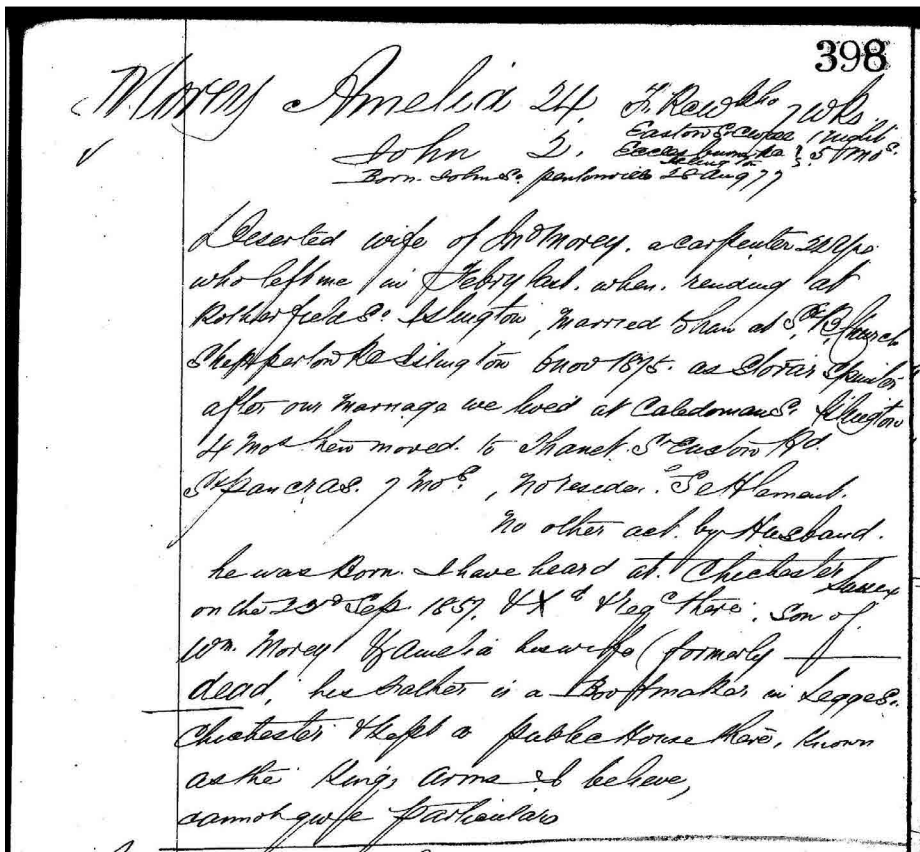 398
Morey Amelia 24. Fr. Rew Rho 7 wks.
Easton S. C Ward 1 night
John 2. 5 mos.
Born John St. Pentonville 28 Aug 77
Deserted wife of Jno Morey. a carpenter 22 yrs.
who left me in Febry last. when. residing at
Rotherfield St. Islington, married to him at St. P. Church
Shepperton Rd Islington 6 Nov 1875. as Spinster
after our marriage we lived at Caledonian St. Islington
4 mos then moved. to Thanet St. Euston Rd.
St. Pancras. 7 mos., no residen. Settlement.
no other act. by Husband.
he was Born. I have heard at. Chichester Sussex
on the 23rd Sep 1857. & Xd & leg. there. Son of
Wm. Morey & Amelia his wife (formerly ——
dead, his Father is a Bootmaker in St.
Chichester & kept a Public House there. Known
as the Kings Arms I believe,
cannot give particulars